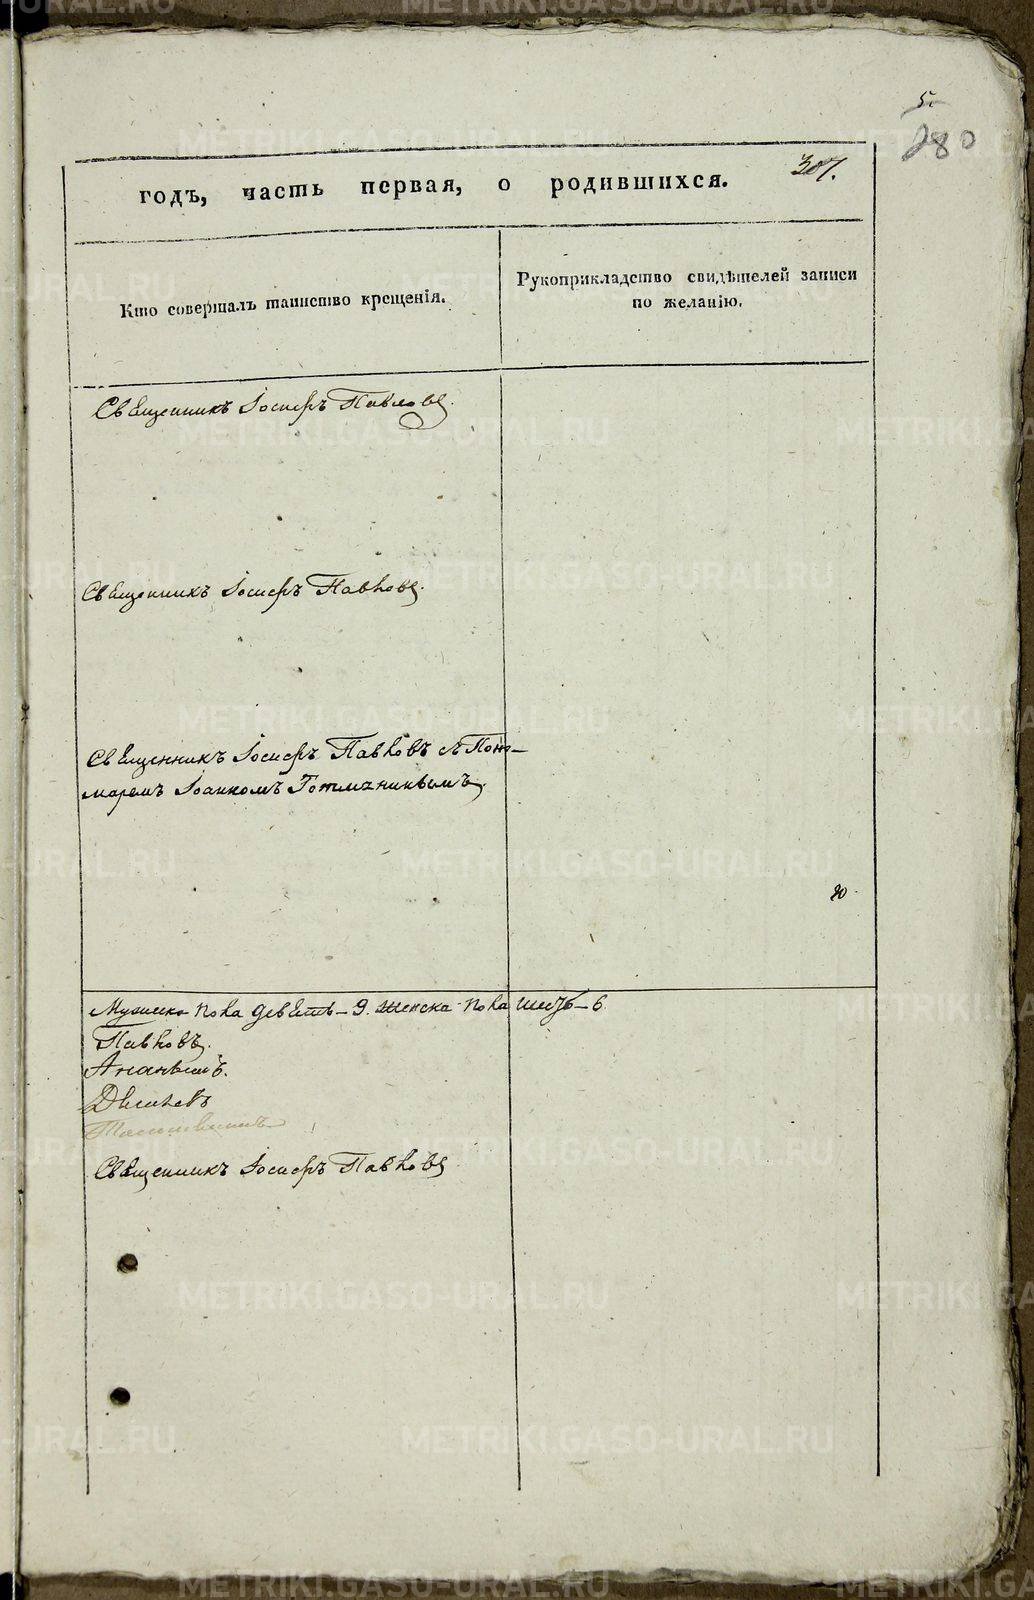 5.
280
307.
годъ, часть первая, о родившихся.
Кто совершалъ таинство крещенія.
Рукоприкладство свидѣтелей записи
по желанію.
Священникъ Іосифъ Павловъ.
Священникъ Іосифъ Павловъ.
Священникъ Іосифъ Павловъ съ Поно-
маремъ Іоанномъ
Мужеска пола девять – 9. Женска пола шесть – 6.
Павловъ.
Священникъ Іосифъ Павловъ
METRIKI.GASO-URAL.RU